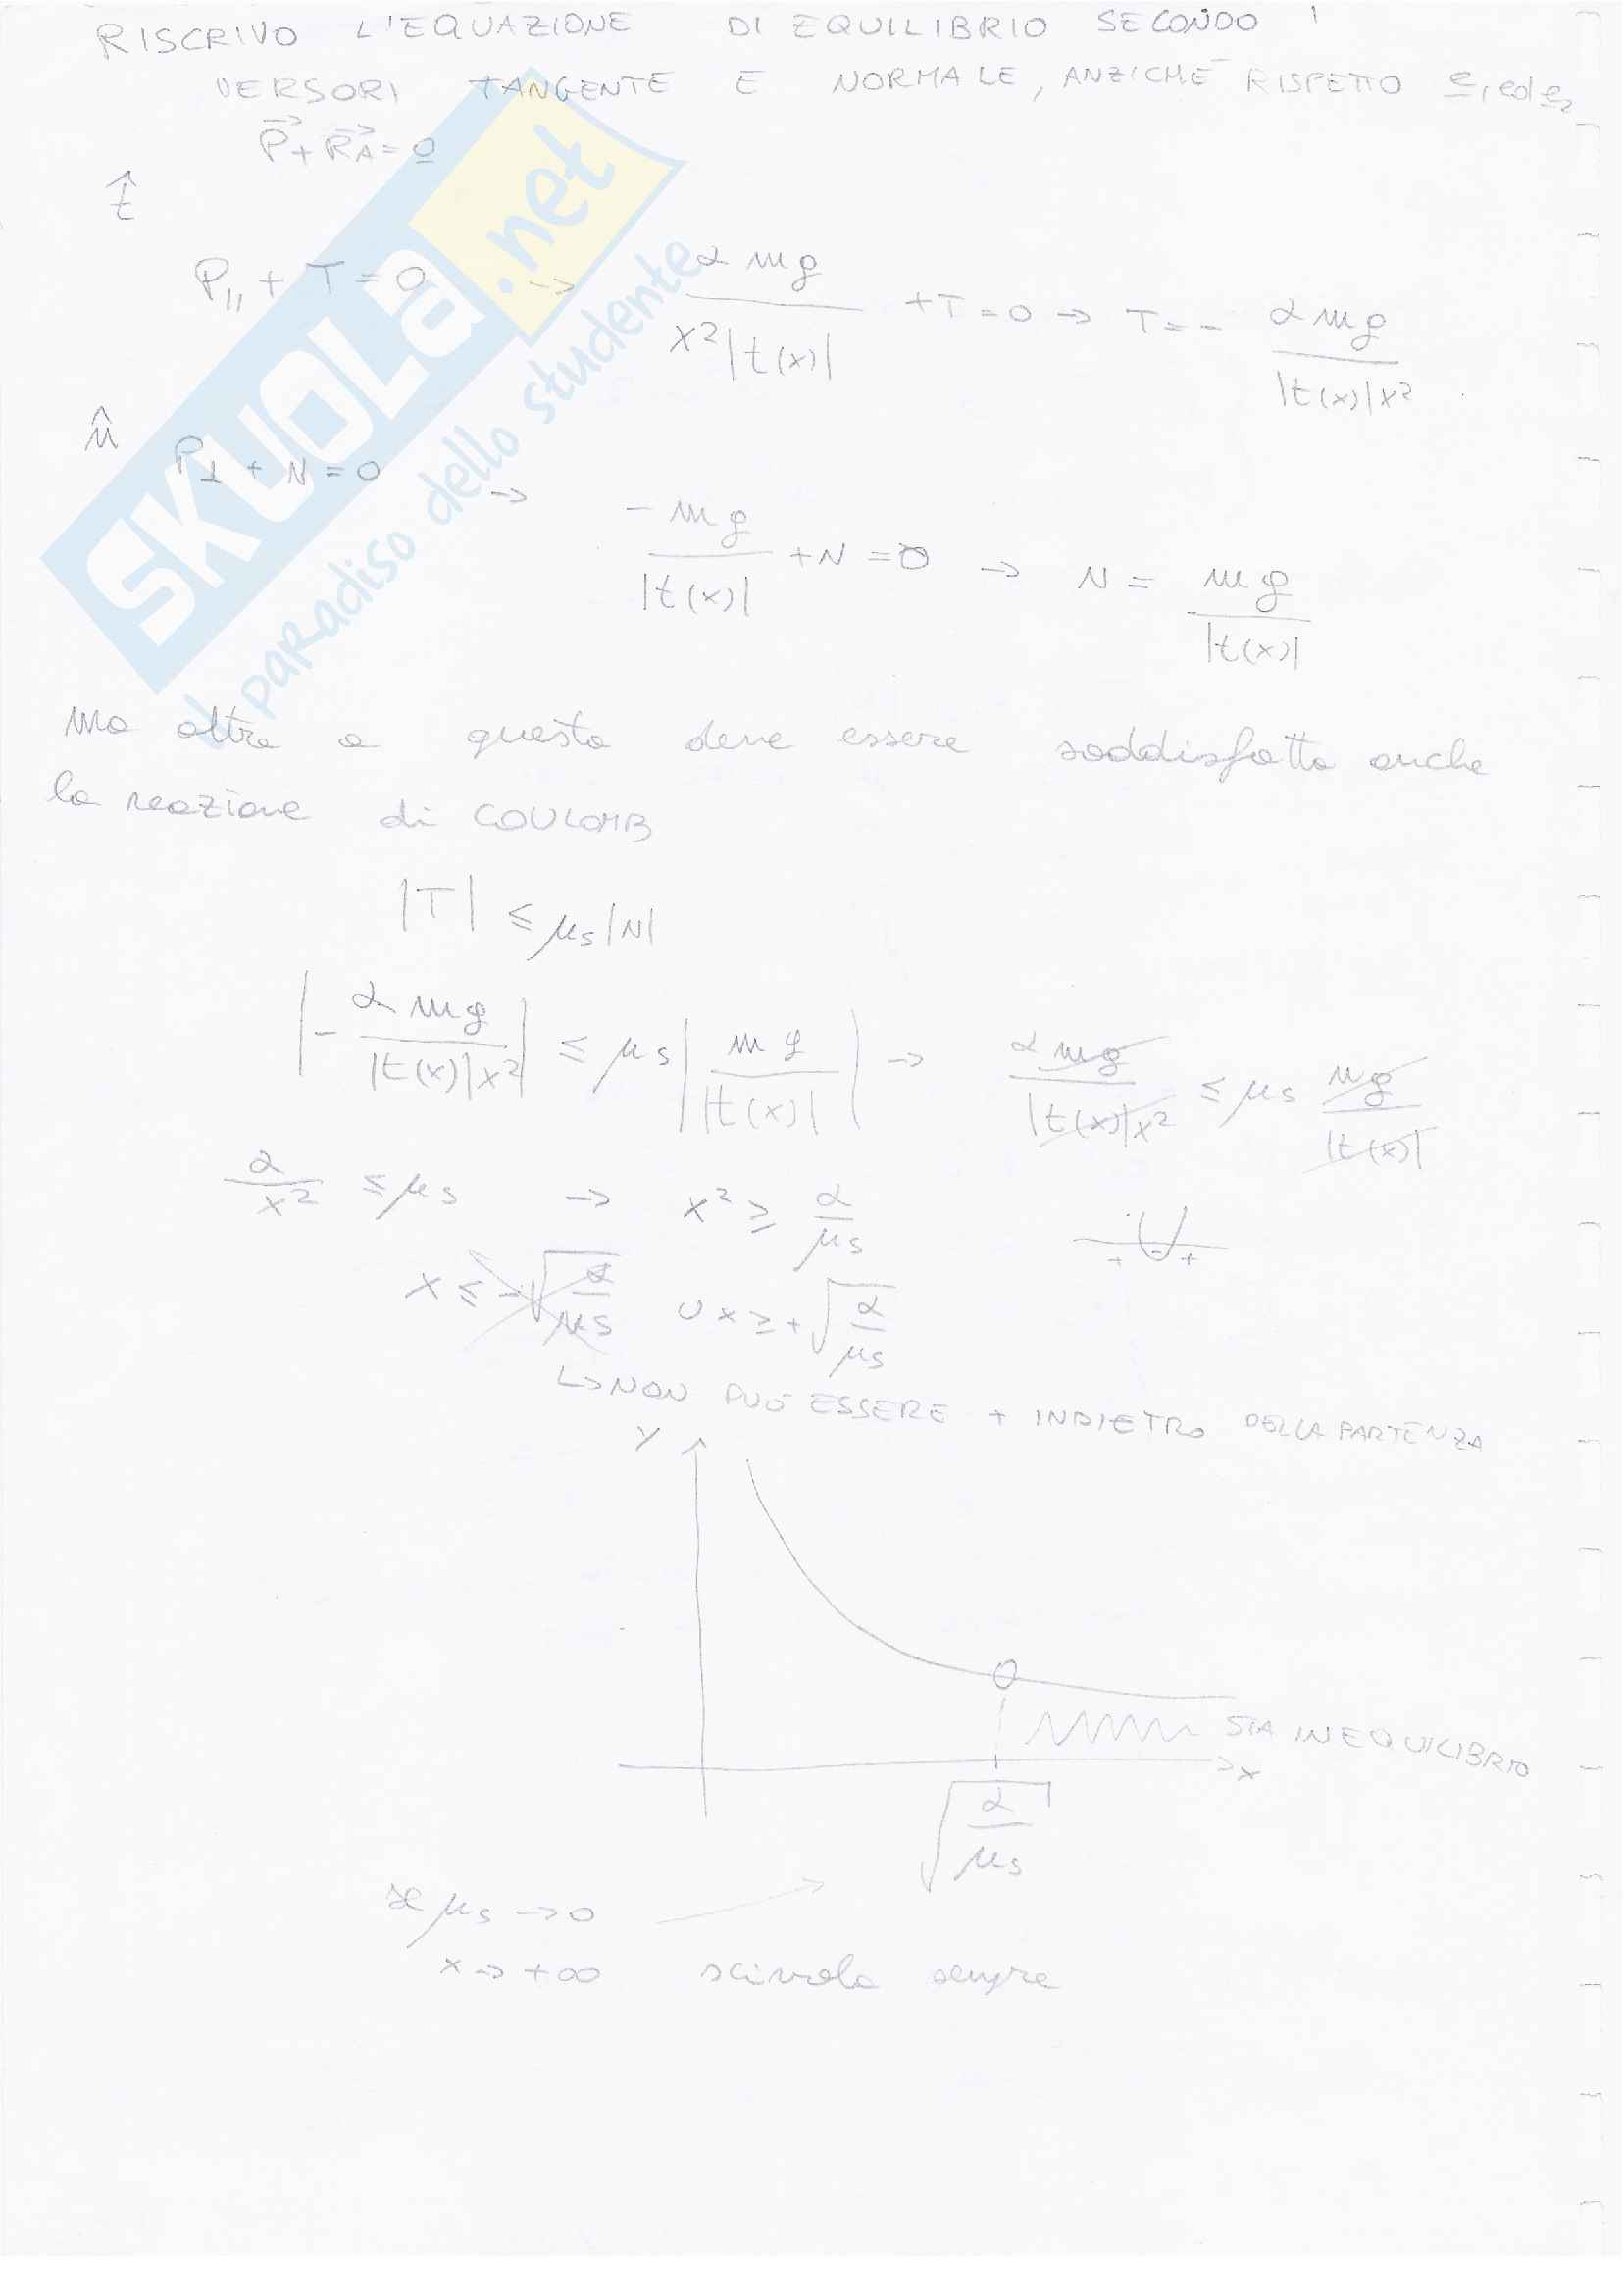 RISCRIVO L'EQUAZIONE DI EQUILIBRIO SECONDO I
VERSORI TANGENTE E NORMALE, ANZICHÈ RISPETTO e₁ ed e₂
P⃗ + R⃗A = 0
t̂
P∥ + T = 0 → α mg / x²|t(x)| + T = 0 → T = - α mg / |t(x)|x²
n̂ P⊥ + N = 0 → - mg / |t(x)| + N = 0 → N = mg / |t(x)|
ma oltre a questo deve essere soddisfatta anche
la reazione di COULOMB
|T| ≤ μs|N|
|- α mg / |t(x)|x²| ≤ μs |mg / |t(x)|| → α mg / |t(x)|x² ≤ μs mg / |t(x)|
α / x² ≤ μs → x² ≥ α / μs
+ - +
x ≤ -√(α / μs) ∪ x ≥ +√(α / μs)
↳ NON PUÒ ESSERE + INDIETRO DELLA PARTENZA
y
STA IN EQUILIBRIO
x
√(α / μs)
se μs → 0
x → +∞ scivola sempre
SKUOLA.net
il paradiso dello studente